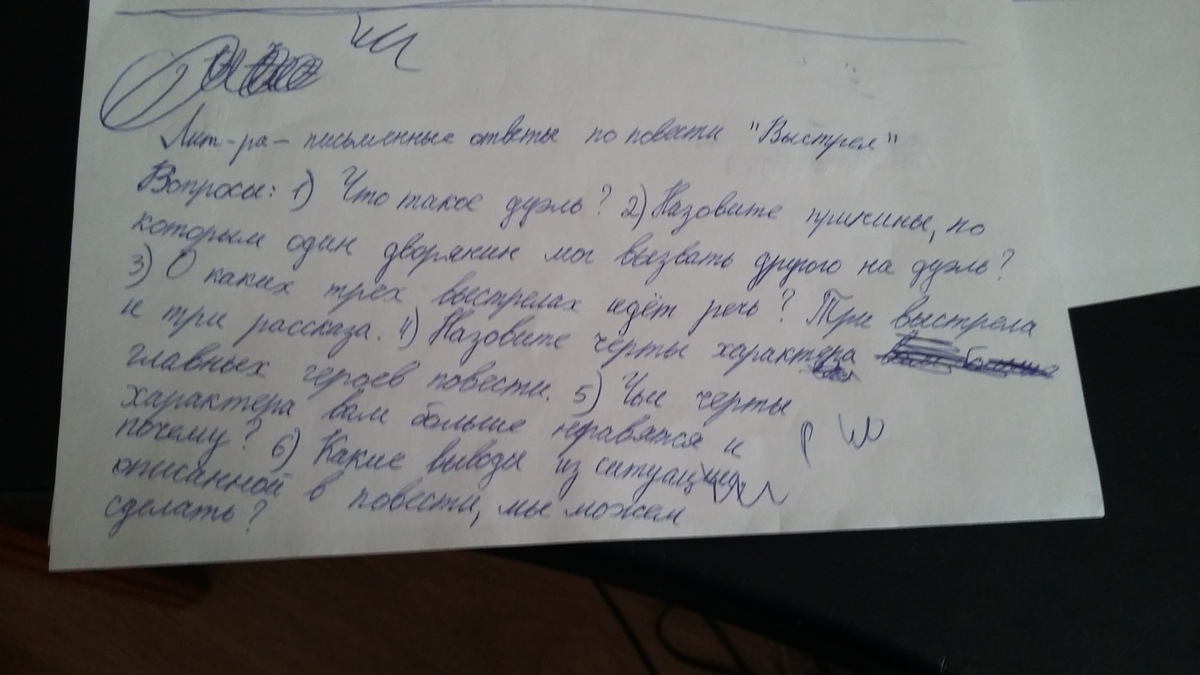 Лит-ра - письменные ответы по повести "Выстрел"
Вопросы: 1) Что такое дуэль? 2) Назовите причины, по
которым один дворянин мог вызвать другого на дуэль?
3) О каких трёх выстрелах идёт речь? Три выстрела
и три рассказа. 4) Назовите черты характера
главных героев повести. 5) Чьи черты
характера вам больше нравятся и
почему? 6) Какие выводы из ситуации,
описанной в повести, мы можем
сделать?